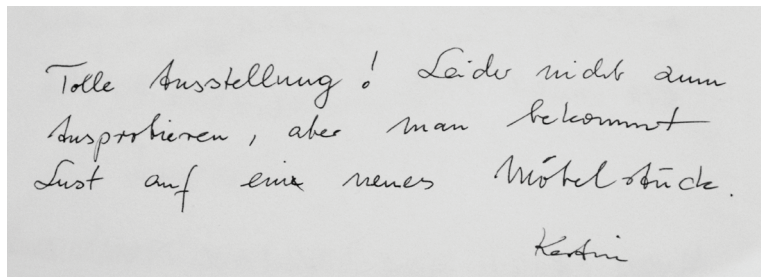 Tolle Ausstellung! Leider nicht zum
Ausprobieren, aber man bekommt
Lust auf ein neues Möbelstück.
Kerstin